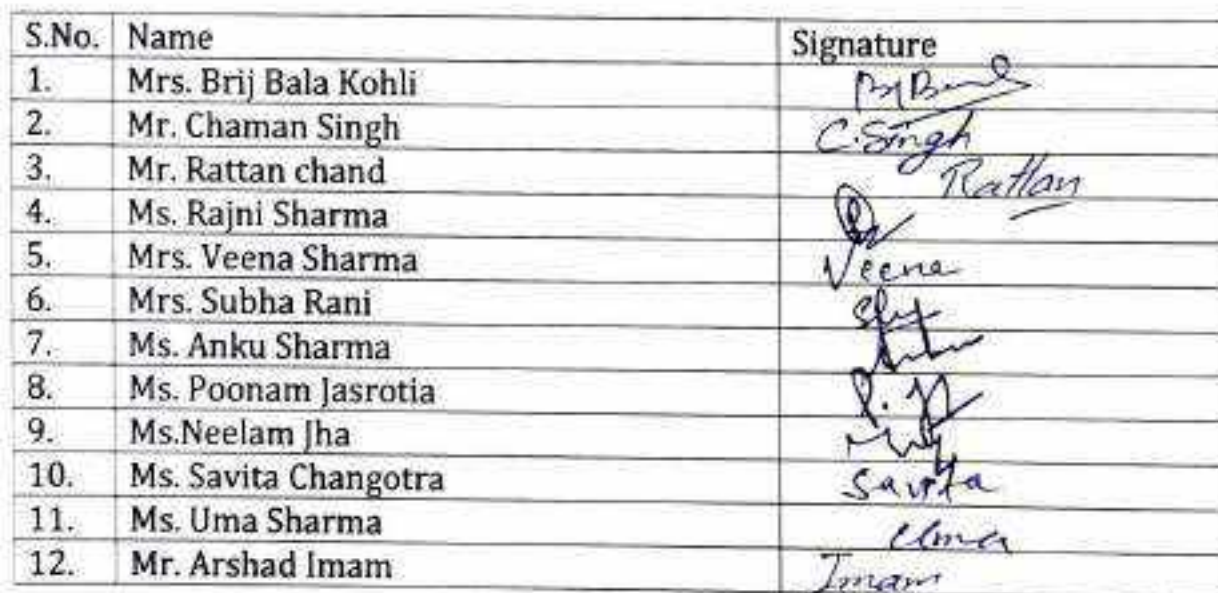 S.No. Name Signature
1. Mrs. Brij Bala Kohli
2. Mr. Chaman Singh C. Singh
3. Mr. Rattan chand Rattan
4. Ms. Rajni Sharma
5. Mrs. Veena Sharma Veena
6. Mrs. Subha Rani
7. Ms. Anku Sharma
8. Ms. Poonam Jasrotia
9. Ms.Neelam Jha
10. Ms. Savita Changotra Savita
11. Ms. Uma Sharma Uma
12. Mr. Arshad Imam Imam